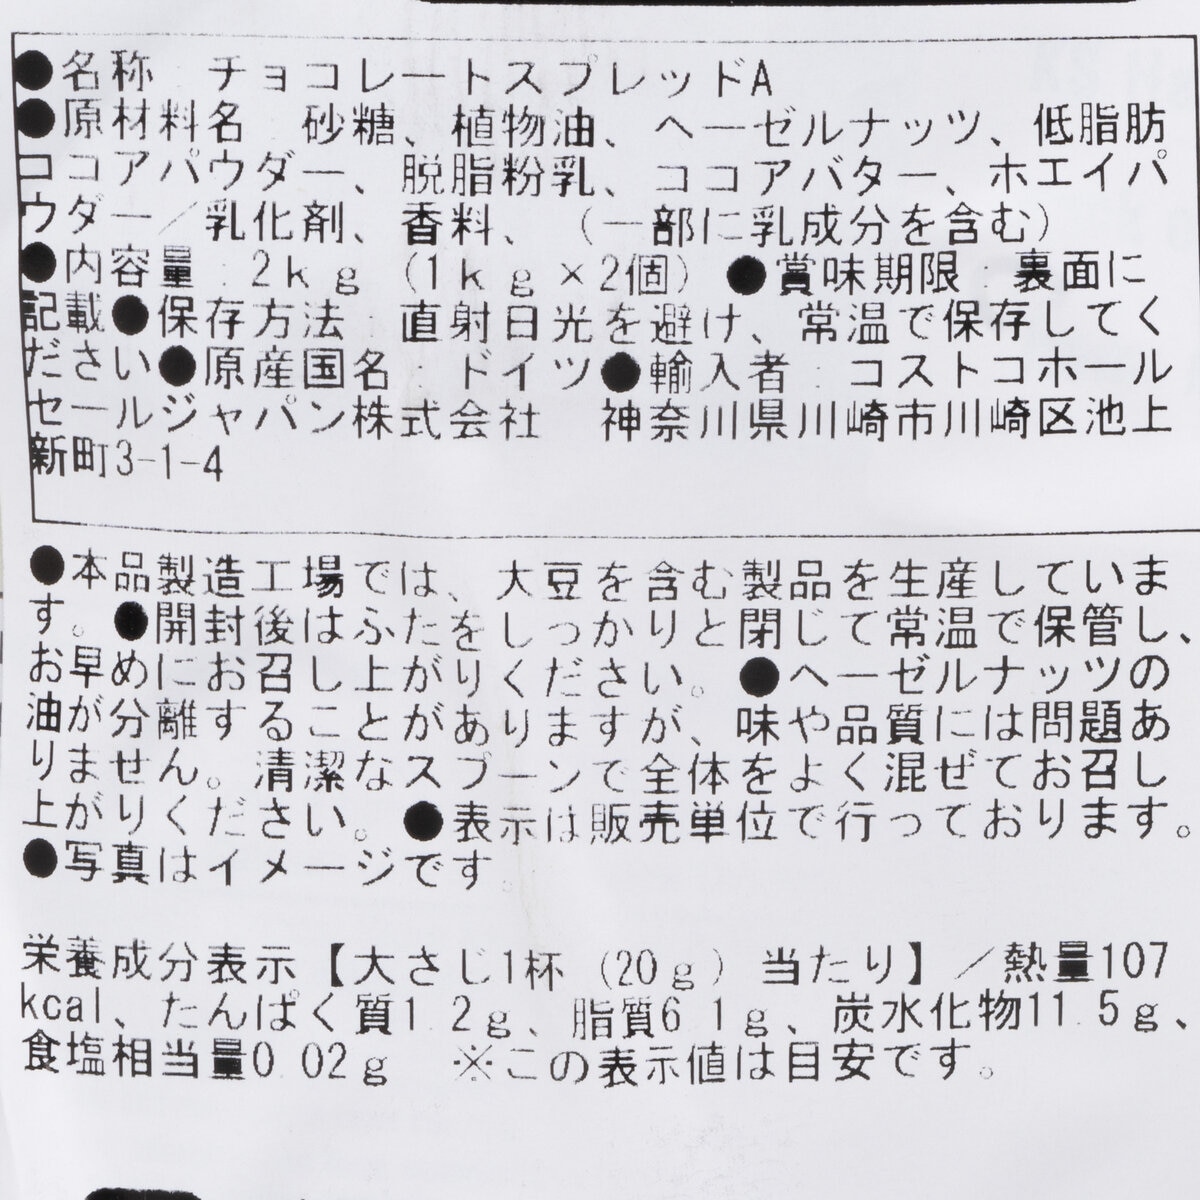 ●名称:チョコレートスプレッドA
●原材料名:砂糖、植物油、ヘーゼルナッツ、低脂肪
ココアパウダー、脱脂粉乳、ココアバター、ホエイパ
ウダー/乳化剤、香料、(一部に乳成分を含む)
●内容量:2kg(1kg×2個)●賞味期限:裏面に
記載●保存方法:直射日光を避け、常温で保存してく
ださい●原産国名:ドイツ●輸入者:コストコホール
セールジャパン株式会社 神奈川県川崎市川崎区池上
新町3-1-4
●本品製造工場では、大豆を含む製品を生産していま
す。●開封後はふたをしっかりと閉じて常温で保管し、
お早めにお召し上がりください。●ヘーゼルナッツの
油が分離することがありますが、味や品質には問題あ
りません。清潔なスプーンで全体をよく混ぜてお召し
上がりください。●表示は販売単位で行っております。
●写真はイメージです。
栄養成分表示【大さじ1杯(20g)当たり】/熱量107
kcal、たんぱく質1.2g、脂質6.1g、炭水化物11.5g、
食塩相当量0.02g ※この表示値は目安です。